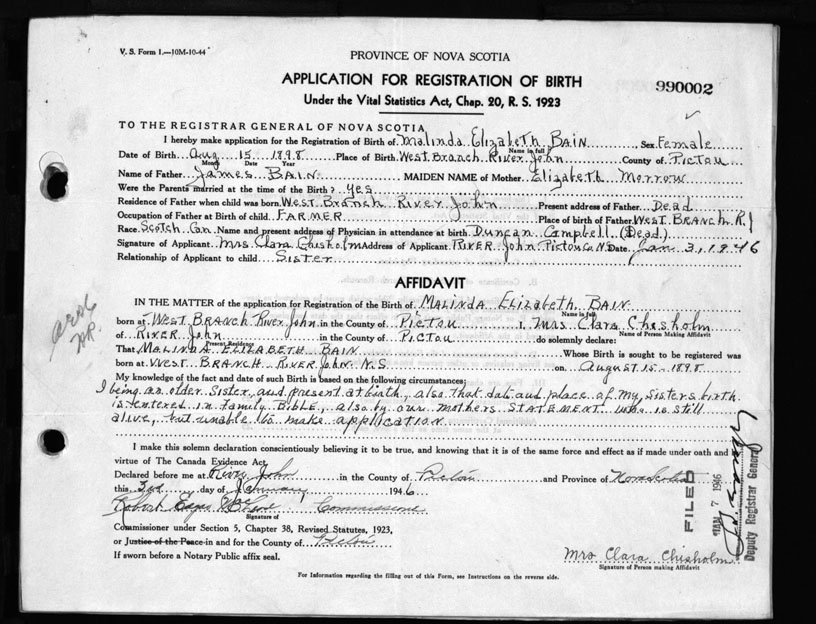 V. S. Form 1.—10M-10-44
PROVINCE OF NOVA SCOTIA
APPLICATION FOR REGISTRATION OF BIRTH
990002
Under the Vital Statistics Act, Chap. 20, R. S. 1923
TO THE REGISTRAR GENERAL OF NOVA SCOTIA
I hereby make application for the Registration of Birth of Malinda Elizabeth BAIN Sex Female
Name in full
Date of Birth Aug 15 1898 Place of Birth West Branch River John County of Pictou
Month Date Year
Name of Father James BAIN MAIDEN NAME of Mother Elizabeth Morrow
Were the Parents married at the time of the Birth? Yes
Residence of Father when child was born West Branch River John Present address of Father Dead
Occupation of Father at Birth of child FARMER Place of birth of Father WEST BRANCH R.J
Race Scotch Can Name and present address of Physician in attendance at birth Duncan Campbell (Dead)
Signature of Applicant Mrs Clara Chisholm Address of Applicant RIVER John Pictou Co N.S Date Jan 3, 1946
Relationship of Applicant to child Sister
AFFIDAVIT
IN THE MATTER of the application for Registration of the Birth of MALINDA Elizabeth BAIN
Name in full
born at WEST BRANCH River John in the County of Pictou I, Mrs Clara Chisholm
Name of Person Making Affidavit
of RIVER John in the County of Pictou do solemnly declare:
Present Residence
That MALINDA ELIZABETH BAIN Whose Birth is sought to be registered was
born at WEST BRANCH RIVER JOHN N.S on August 15 - 1898
My knowledge of the fact and date of such Birth is based on the following circumstances:
I being an older Sister, and present at birth, also that date and place of my Sisters birth
is entered in family BIBLE, also by our mothers STATEMENT who is still
alive, but unable to make application
I make this solemn declaration conscientiously believing it to be true, and knowing that it is of the same force and effect as if made under oath and by
virtue of The Canada Evidence Act.
Declared before me at River John in the County of Pictou and Province of Nova Scotia
this 3rd day of January 1946
Robert Commissioner
Signature of
Commissioner under Section 5, Chapter 38, Revised Statutes, 1923,
or Justice of the Peace in and for the County of Pictou
If sworn before a Notary Public affix seal.
Mrs Clara Chisholm
Signature of Person making Affidavit
For Information regarding the filling out of this Form, see Instructions on the reverse side.
FILED
JAN 7 1946
Deputy Registrar General